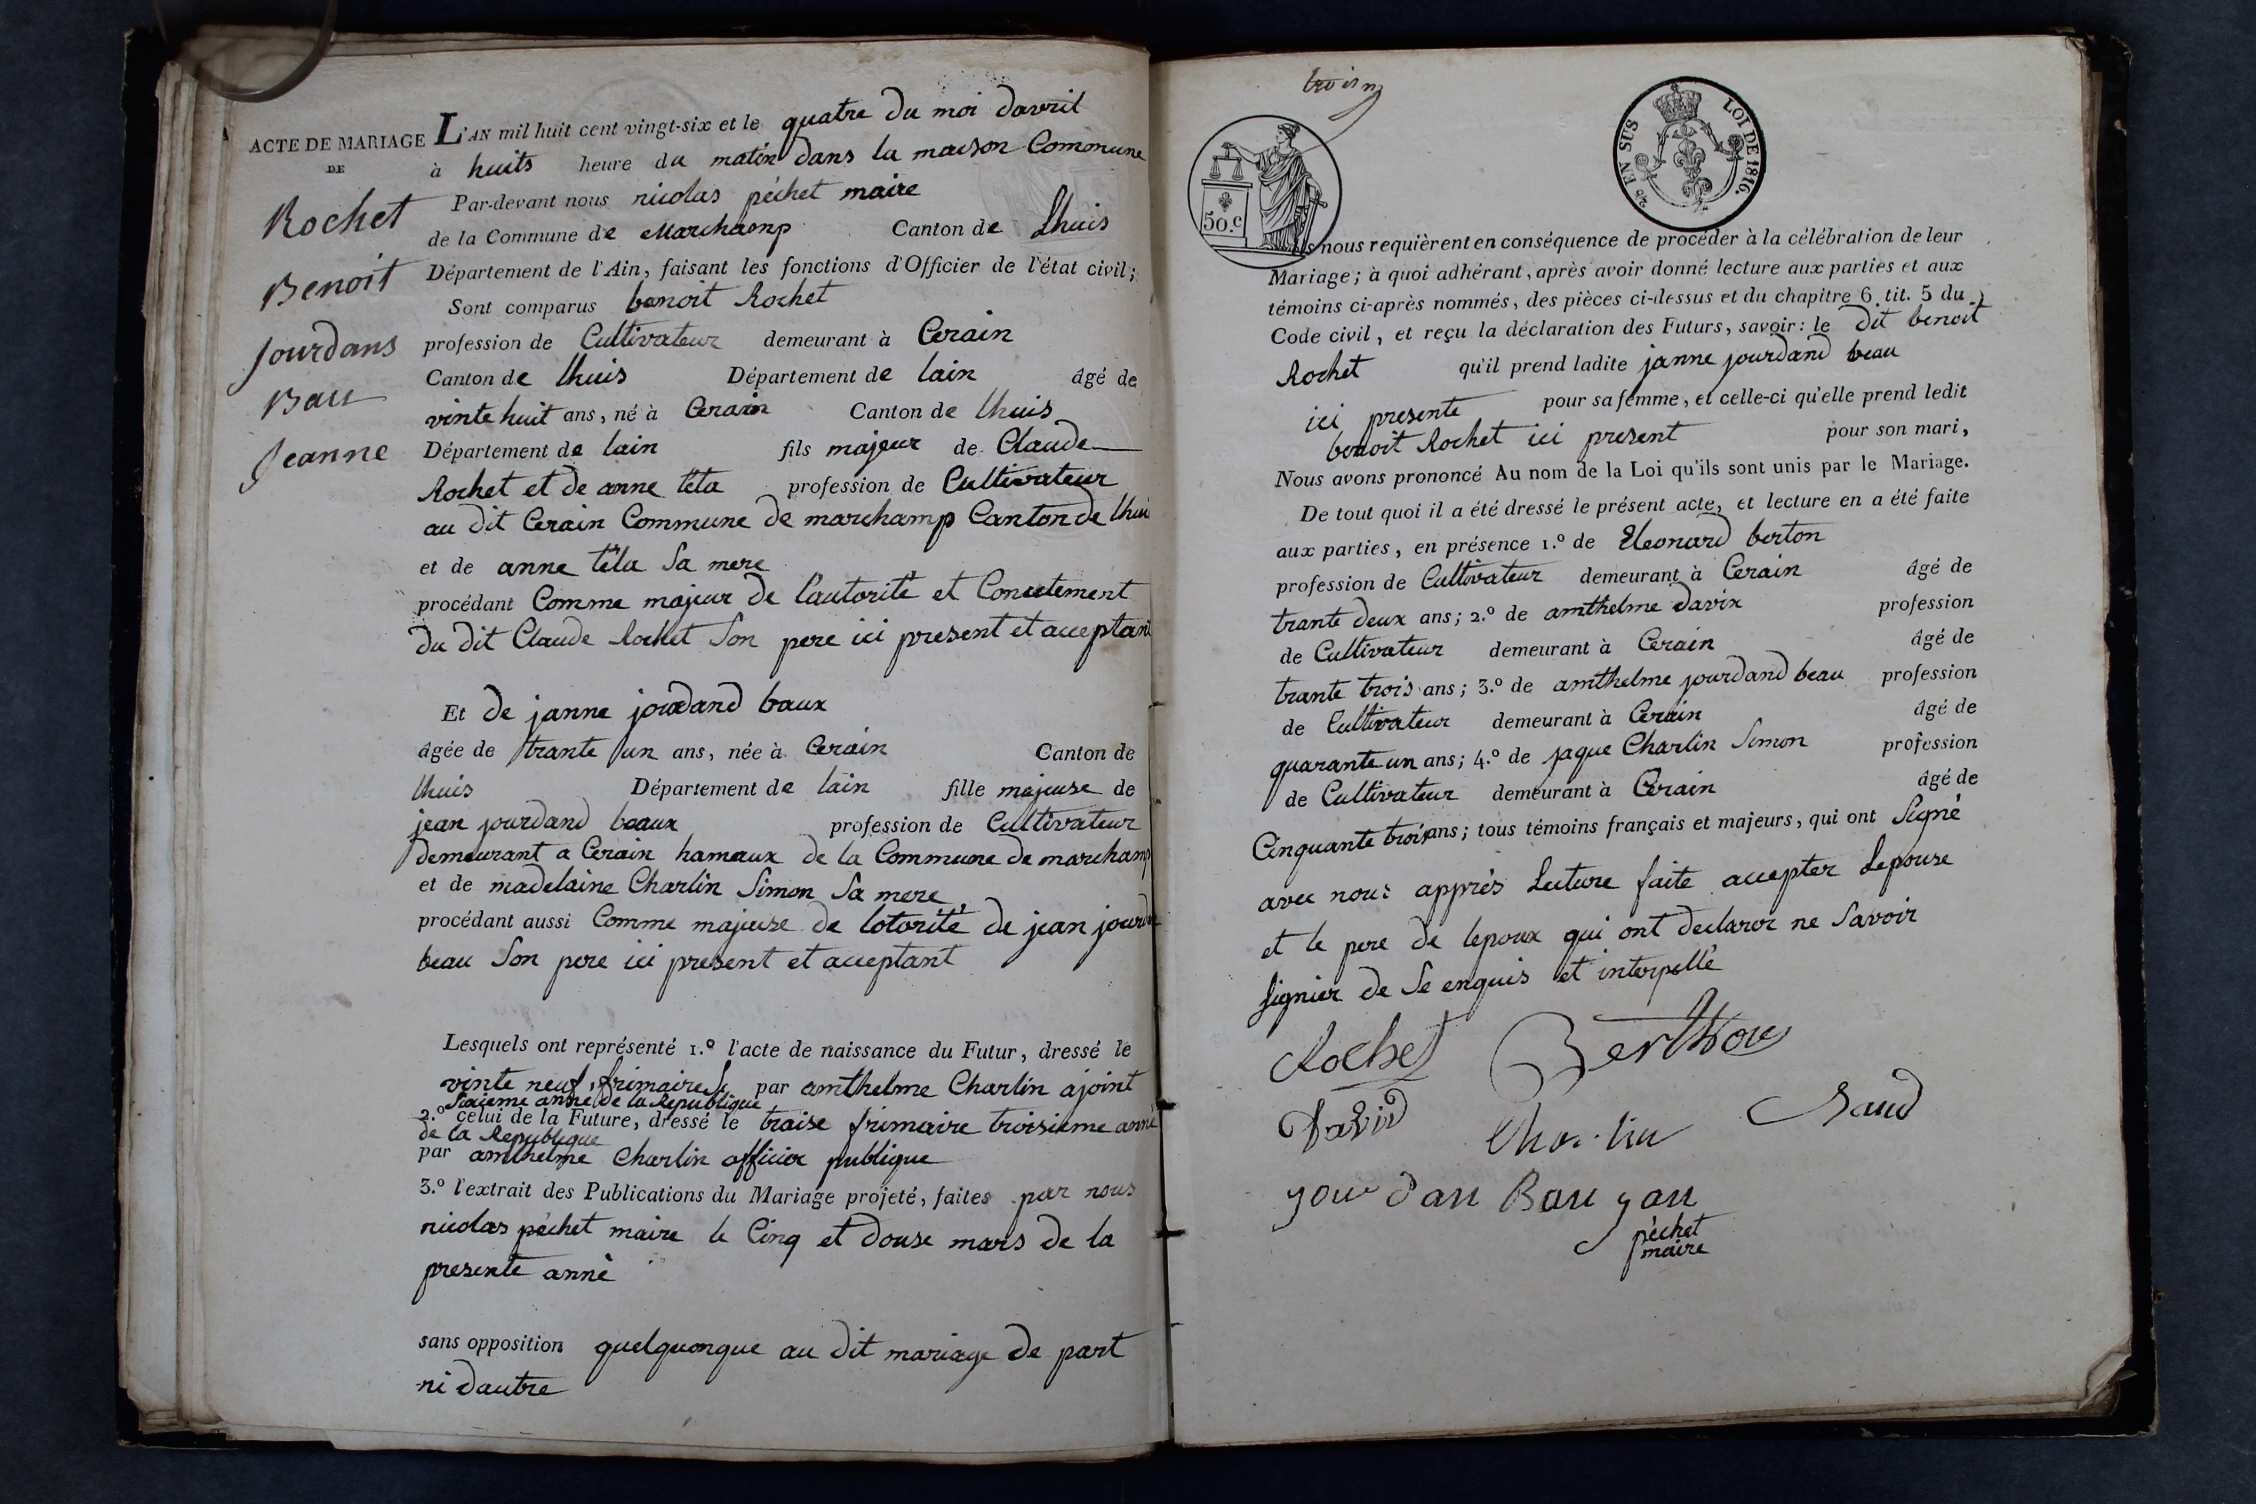 ACTE DE MARIAGE
DE
Rochet
Benoit
Jourdans
Bau
Jeanne
L'AN mil huit cent vingt-six et le quatre du moi davril
à huits heure du matin dans la maison Commune
Par-devant nous nicolas péchet maire
de la Commune de Marchamp Canton de Lhuis
Département de l'Ain, faisant les fonctions d'Officier de l'état civil;
Sont comparus benoit Rochet
profession de Cultivateur demeurant à Cerain
Canton de lhuis Département de lain âgé de
vinte huit ans, né à Cerain Canton de lhuis
Département de lain fils majeur de Claude
Rochet et de anne téta profession de Cultivateur
au dit Cerain Commune de marchamp Canton de lhuis
et de anne téta Sa mere
procédant Comme majeur de lautorité et
du dit Claude Rochet Son pere ici present et acceptant
Et de janne jourdand baux
âgée de trante un ans, née à Cerain Canton de
lhuis Département de lain fille majeuse de
jean jourdand beaux profession de Cultivateur
demeurant a Cerain hameaux de la Commune de marchamp
et de madelaine Charlin Simon Sa mere,
procédant aussi Comme majeuse de lotorité de jean jourdan
beau Son pere ici present et acceptant
Lesquels ont représenté 1.º l'acte de naissance du Futur, dressé le
vinte neuf frimaire par amthelme Charlin ajoint
Sixieme anné de la Republique
2.º celui de la Future, dressé le traise frimaire troisieme anné
de la Republique
par amthelme Charlin officier publique
3.º l'extrait des Publications du Mariage projeté, faites par nous
nicolas péchet maire le Cinq et douse mars de la
presente anné
sans opposition quelquonque au dit mariage de part
ni dautre
troisn
50.c
2e EN SUS
LOI DE 1816.
nous requièrent en conséquence de procéder à la célébration de leur
Mariage; à quoi adhérant, après avoir donné lecture aux parties et aux
témoins ci-après nommés, des pièces ci-dessus et du chapitre 6 tit. 5 du
Code civil, et reçu la déclaration des Futurs, savoir: le dit benoit
Rochet qu'il prend ladite janne jourdand beau
ici presente pour sa femme, et celle-ci qu'elle prend ledit
benoit Rochet ici present pour son mari,
Nous avons prononcé Au nom de la Loi qu'ils sont unis par le Mariage.
De tout quoi il a été dressé le présent acte, et lecture en a été faite
aux parties, en présence 1.º de Eleonard berton
profession de Cultivateur demeurant à Cerain âgé de
trante deux ans; 2.º de amthelme davix profession
de Cultivateur demeurant à Cerain âgé de
trante trois ans; 3.º de amthelme jourdand beau profession
de Cultivateur demeurant à Cerain âgé de
quarante un ans; 4.º de jaque Charlin Simon profession
de Cultivateur demeurant à Cerain âgé de
Cinquante trois ans; tous témoins français et majeurs, qui ont Signé
avec nous apprés Lecture faite accepter Lepouse
et le pere de lepoux qui ont declarer ne Savoir
Signier de Se enquis et interpellé
Rochet Berthon
David Charlin
jourdan Bau jan
péchet
maire